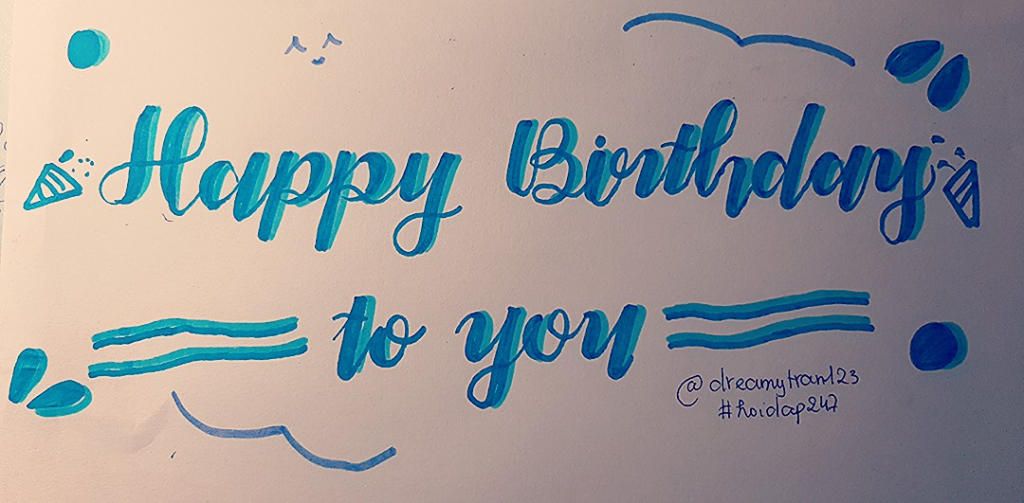 Happy Birthday
to you
@dreamytran123
#hoidap247